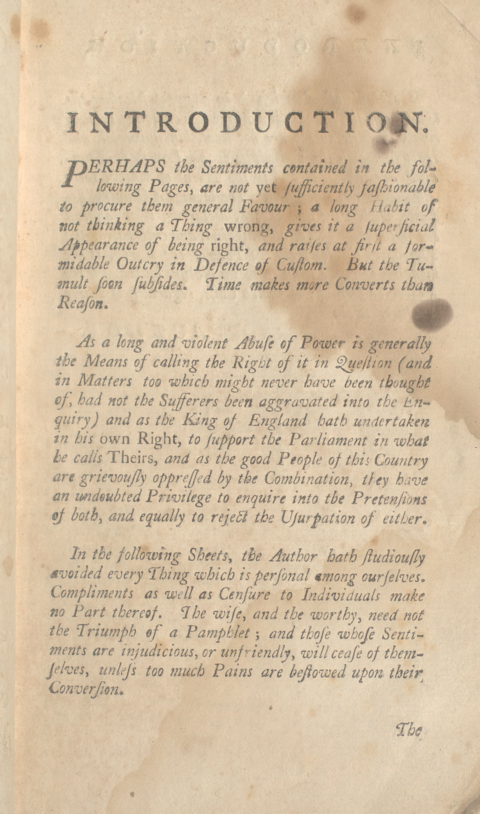 INTRODUCTION.
PERHAPS the Sentiments contained in the fol-
lowing Pages, are not yet ſufficiently faſhionable
to procure them general Favour ; a long Habit of
not thinking a Thing wrong, gives it a ſuperficial
Appearance of being right, and raiſes at firſt a for-
midable Outcry in Defence of Cuſtom. But the Tu-
mult ſoon ſubſides. Time makes more Converts than
Reaſon.
As a long and violent Abuſe of Power is generally
the Means of calling the Right of it in Queſtion (and
in Matters too which might never have been thought
of, had not the Sufferers been aggravated into the En-
quiry) and as the King of England hath undertaken
in his own Right, to ſupport the Parliament in what
he calls Theirs, and as the good People of this Country
are grievouſly oppreſſed by the Combination, they have
an undoubted Privilege to enquire into the Pretenſions
of both, and equally to reject the Uſurpation of either.
In the following Sheets, the Author hath ſtudiouſly
avoided every Thing which is perſonal among ourſelves.
Compliments as well as Cenſure to Individuals make
no Part thereof. The wiſe, and the worthy, need not
the Triumph of a Pamphlet ; and thoſe whoſe Senti-
ments are injudicious, or unfriendly, will ceaſe of them-
ſelves, unleſs too much Pains are beſtowed upon their
Converſion.
The